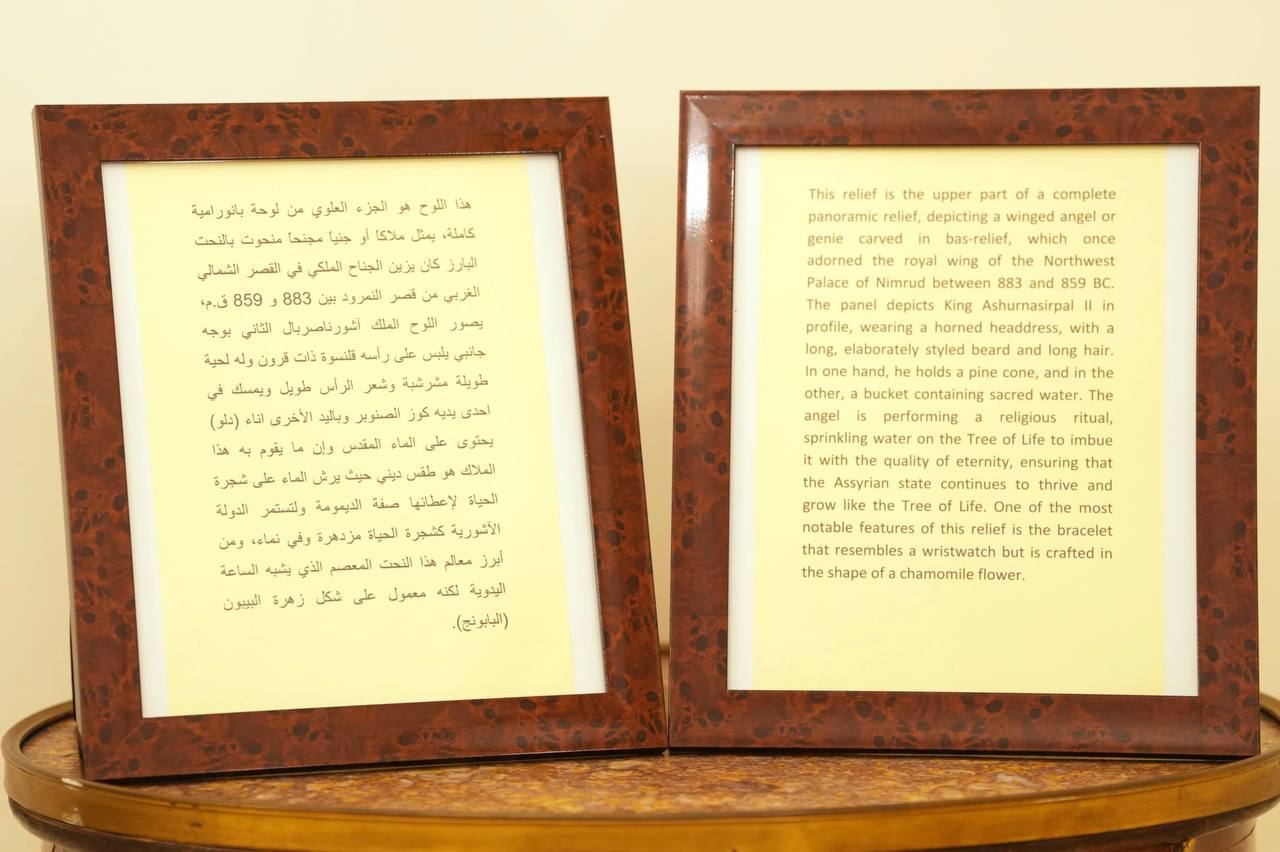 هذا اللوح هو الجزء العلوي من لوحة بانورامية
كاملة، يمثل ملاكاً أو جنياً مجنحاً منحوت بالنحت
البارز كان يزين الجناح الملكي في القصر الشمالي
الغربي من قصر النمرود بين 883 و 859 ق.م،
يصور اللوح الملك آشورناصربال الثاني بوجه
جانبي يلبس على رأسه قلنسوة ذات قرون وله لحية
طويلة مشرشبة وشعر الرأس طويل ويمسك في
احدى يديه كوز الصنوبر وباليد الأخرى اناء (دلو)
يحتوى على الماء المقدس وإن ما يقوم به هذا
الملاك هو طقس ديني حيث يرش الماء على شجرة
الحياة لإعطائها صفة الديمومة ولتستمر الدولة
الآشورية كشجرة الحياة مزدهرة وفي نماء، ومن
أبرز معالم هذا النحت المعصم الذي يشبه الساعة
اليدوية لكنه معمول على شكل زهرة البيبون
(البابونج).
This relief is the upper part of a complete
panoramic relief, depicting a winged angel or
genie carved in bas-relief, which once
adorned the royal wing of the Northwest
Palace of Nimrud between 883 and 859 BC.
The panel depicts King Ashurnasirpal II in
profile, wearing a horned headdress, with a
long, elaborately styled beard and long hair.
In one hand, he holds a pine cone, and in the
other, a bucket containing sacred water. The
angel is performing a religious ritual,
sprinkling water on the Tree of Life to imbue
it with the quality of eternity, ensuring that
the Assyrian state continues to thrive and
grow like the Tree of Life. One of the most
notable features of this relief is the bracelet
that resembles a wristwatch but is crafted in
the shape of a chamomile flower.